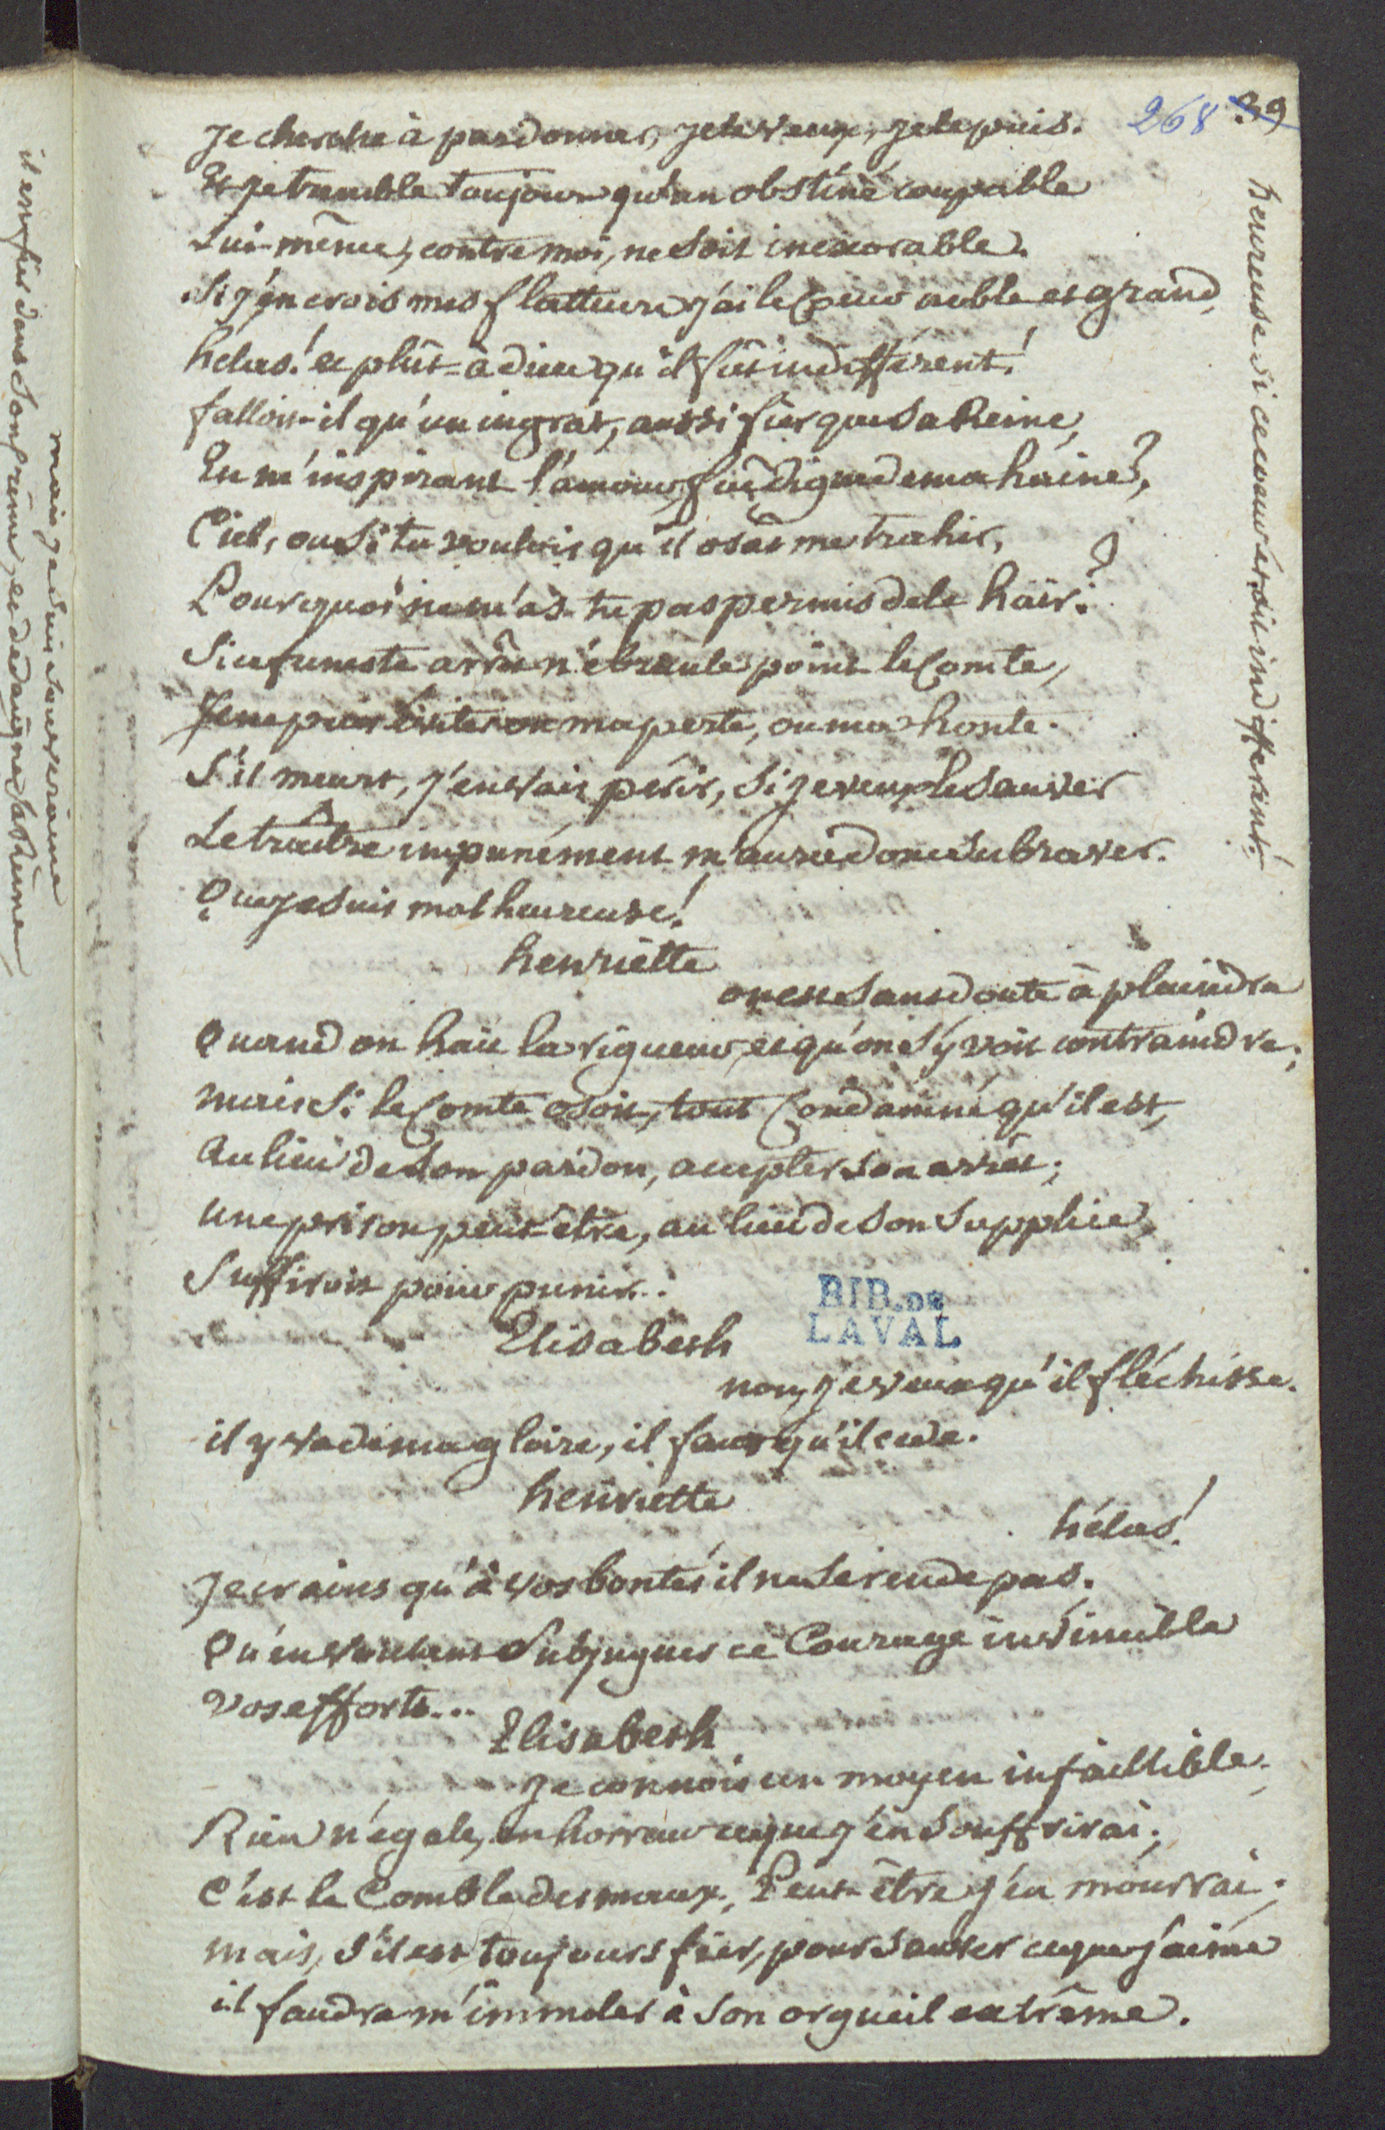 268 39
Je cherche à pardonner, je le veux, je le puis.
Et je tremble toujours qu'un obstiné coupable
Lui-même, contre moi, ne soit inexorable.
Si j'en crois mes flatteurs j'ai le cœur noble et grand,
helas! et plût-à dieu qu'il fût indifférent!
falloit-il qu'un ingrat, aussi fier que sa Reine,
En m'inspirant l'amour, fut digne de ma haine?
Ciel, ou si tu voulois qu'il osât me trahir,
Pourquoi ne m'as-tu pas permis de le haïr?
Si ce funeste arrêt n'ébranle point le Comte,
Je ne puis éviter ou ma perte, ou ma honte.
S'il meurt, j'en vais périr, si je veux le sauver
Le traître impunément m'aura donc su braver.
Que je suis malheureuse!
henriette
on est sans doute à plaindre
Quand on hait la rigueur, et qu'on s'y voit contraindre;
mais si le Comte osoit, tout Condamné qu'il est,
Au lieu de son pardon, accepter son arrêt;
une prison peut-être, au lieu de son supplice,
Suffiroit pour punir..
Elisabeth
non, je veux qu'il fléchisse.
il y va de ma gloire, il faut qu'il cede.
henriette
hélas!
Je crains qu'à vos bontés il ne se rende pas.
Qu'en voulant subjuguer ce Courage invincible
vos efforts...
Elisabeth
Je connois un moyen infaillible.
Rien n'égale, en horreur ce que j'en souffrirai;
C'est le Comble des maux, Peut-être j'en mourrai;
mais, s'il est toujours fier, pour sauver ce que j'aime
il faudra m'immoler à son orgueil extrême.
heureuse si ce cœur étoit indifferent!
mais je suis souveraine
il est fier dans son crime, et dedaigne sa Reine
BIB. DE
LAVAL